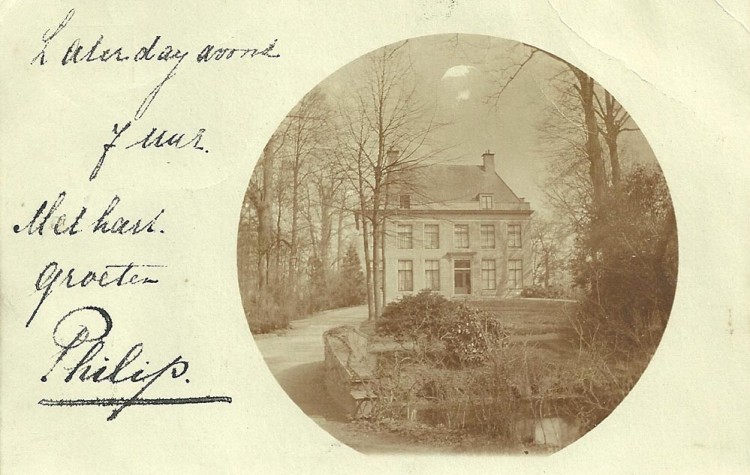 Zaterdag avond
7 uur.
Met hart.
groeten
Philip.